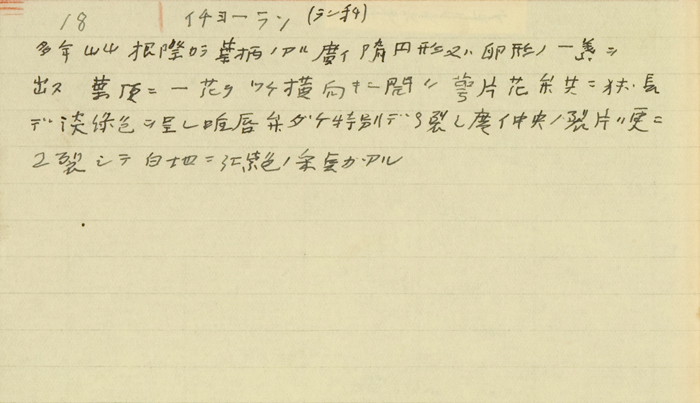 18 イチヨーラン (ラン科)
多年 山 根際カラ葉柄ノアル廣イ隋円形又ハ卵形ノ一葉ヲ
出ス 莖頂ニ一花ヲツケ横向キニ開ク 萼片花弁共ニ狹長
デ淡緑色ヲ呈シ唯唇弁ダケ特別デ3裂シ廣イ中央ノ裂片ハ更ニ
2裂シテ白地ニ紅紫色ノ条点ガアル